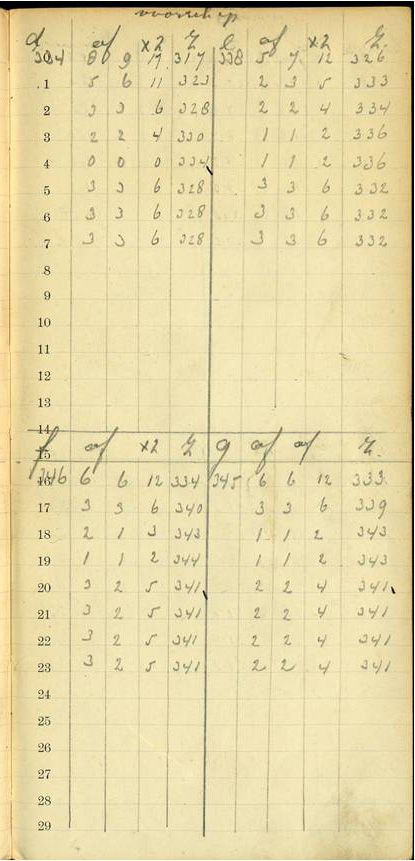 voorschip
d af x2 Z e af x2 Z.
334 8 9 17 317 338 5 7 12 326
1 5 6 11 323 2 3 5 333
2 3 3 6 328 2 2 4 334
3 2 2 4 330 1 1 2 336
4 0 0 0 334 1 1 2 336
5 3 3 6 328 3 3 6 332
6 3 3 6 328 3 3 6 332
7 3 3 6 328 3 3 6 332
8
9
10
11
12
13
14
15 f af x2 Z g af af Z.
16 346 6 6 12 334 345 6 6 12 333
17 3 3 6 340 3 3 6 339
18 2 1 3 343 1 1 2 343
19 1 1 2 344 1 1 2 343
20 3 2 5 341 2 2 4 341
21 3 2 5 341 2 2 4 341
22 3 2 5 341 2 2 4 341
23 3 2 5 341 2 2 4 341
24
25
26
27
28
29